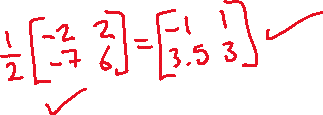 1/2 [-2 2; -7 6] = [-1 1; 3.5 3] ✓
✓